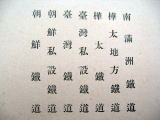 南滿洲鐵道
樺太地方鐵道
樺太鐵道
臺灣私設鐵道
臺灣鐵道
朝鮮私設鐵道
朝鮮鐵道